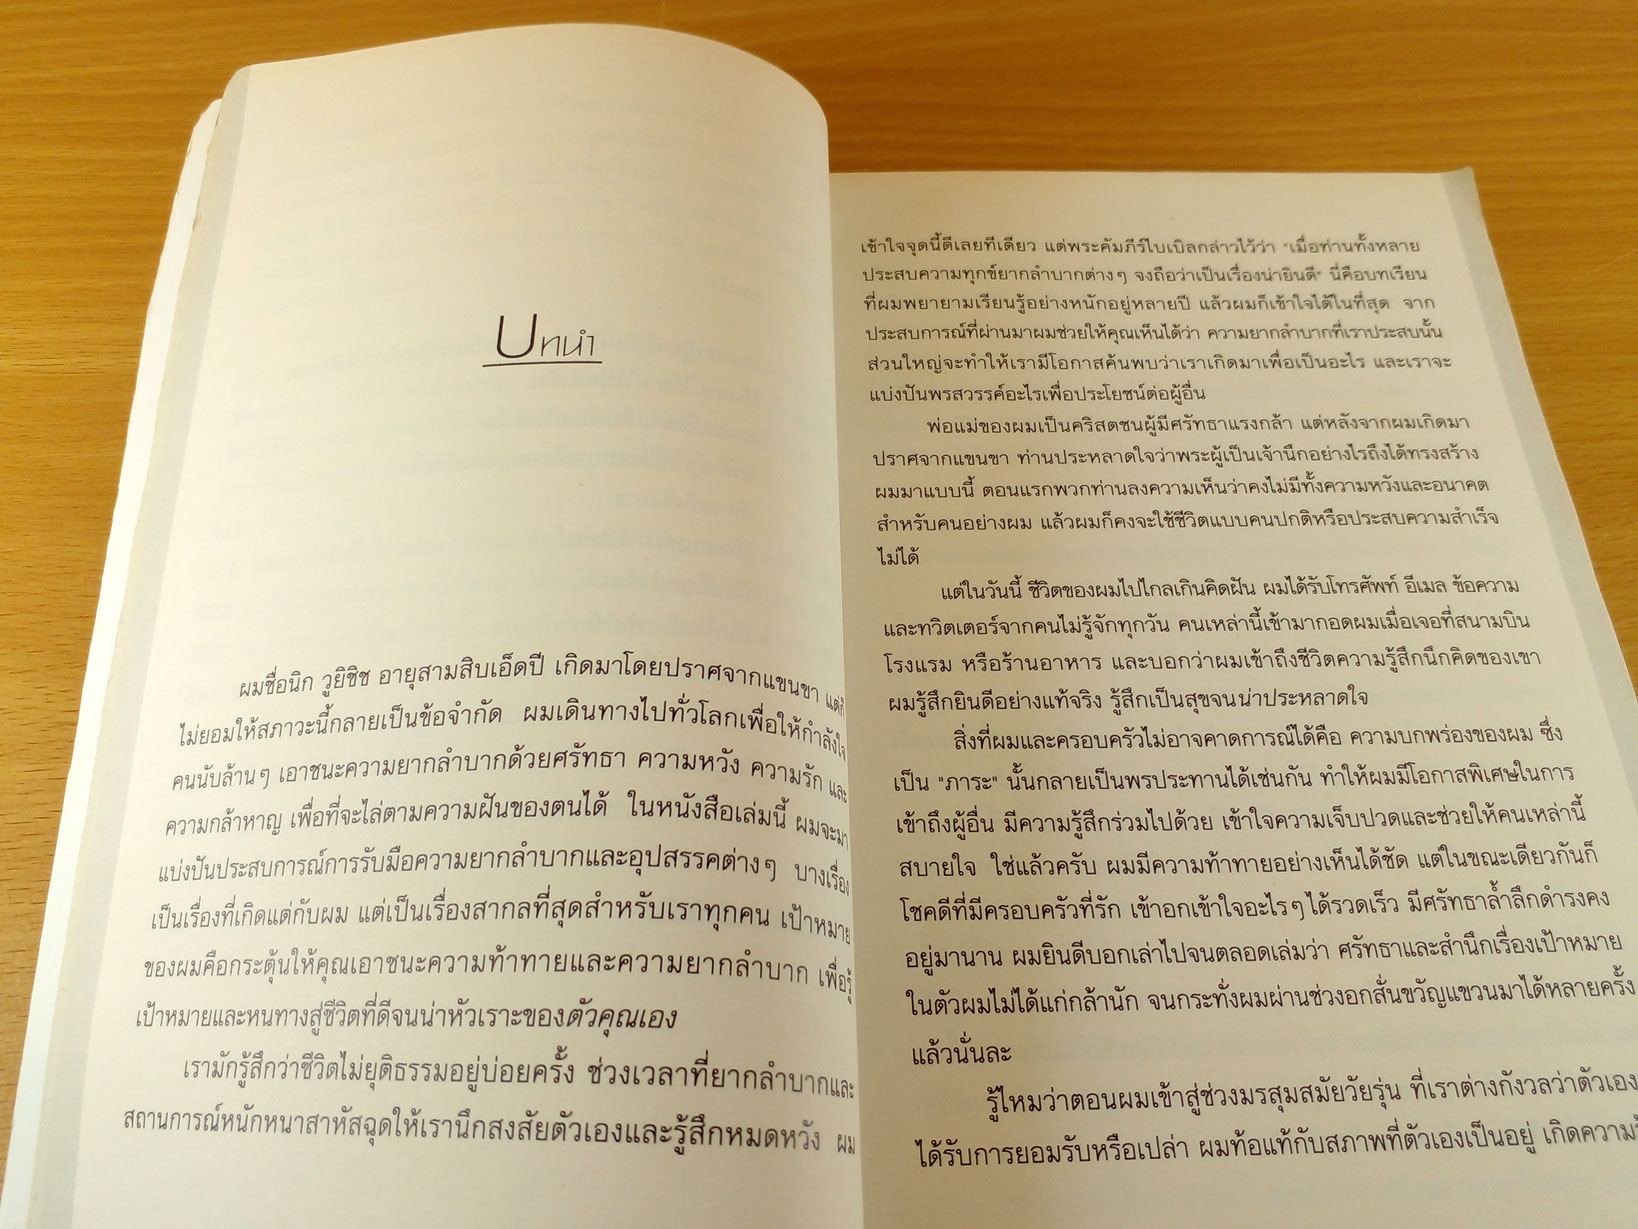 บทนำ
ผมชื่อนิก วูยิชิช อายุสามสิบเอ็ดปี เกิดมาโดยปราศจากแขนขา แต่ก็
ไม่ยอมให้สภาวะนี้กลายเป็นข้อจำกัด ผมเดินทางไปทั่วโลกเพื่อให้กำลังใจ
คนนับล้านๆ เอาชนะความยากลำบากด้วยศรัทธา ความหวัง ความรัก และ
ความกล้าหาญ เพื่อที่จะไล่ตามความฝันของตนได้ ในหนังสือเล่มนี้ ผมจะมา
แบ่งปันประสบการณ์การรับมือความยากลำบากและอุปสรรคต่างๆ บางเรื่อง
เป็นเรื่องที่เกิดแต่กับผม แต่เป็นเรื่องสากลที่สุดสำหรับเราทุกคน เป้าหมาย
ของผมคือกระตุ้นให้คุณเอาชนะความท้าทายและความยากลำบาก เพื่อรู้
เป้าหมายและหนทางสู่ชีวิตที่ดีจนน่าหัวเราะของตัวคุณเอง
เรามักรู้สึกว่าชีวิตไม่ยุติธรรมอยู่บ่อยครั้ง ช่วงเวลาที่ยากลำบากและ
สถานการณ์หนักหนาสาหัสฉุดให้เรานึกสงสัยตัวเองและรู้สึกหมดหวัง ผม
เข้าใจจุดนี้ดีเลยทีเดียว แต่พระคัมภีร์ไบเบิลกล่าวไว้ว่า "เมื่อท่านทั้งหลาย
ประสบความทุกข์ยากลำบากต่างๆ จงถือว่าเป็นเรื่องน่ายินดี" นี่คือบทเรียน
ที่ผมพยายามเรียนรู้อย่างหนักอยู่หลายปี แล้วผมก็เข้าใจได้ในที่สุด จาก
ประสบการณ์ที่ผ่านมาผมช่วยให้คุณเห็นได้ว่า ความยากลำบากที่เราประสบนั้น
ส่วนใหญ่จะทำให้เรามีโอกาสค้นพบว่าเราเกิดมาเพื่อเป็นอะไร และเราจะ
แบ่งปันพรสวรรค์อะไรเพื่อประโยชน์ต่อผู้อื่น
พ่อแม่ของผมเป็นคริสตชนผู้มีศรัทธาแรงกล้า แต่หลังจากผมเกิดมา
ปราศจากแขนขา ท่านประหลาดใจว่าพระผู้เป็นเจ้านึกอย่างไรถึงได้ทรงสร้าง
ผมมาแบบนี้ ตอนแรกพวกท่านลงความเห็นว่าคงไม่มีทั้งความหวังและอนาคต
สำหรับคนอย่างผม แล้วผมก็คงจะใช้ชีวิตแบบคนปกติหรือประสบความสำเร็จ
ไม่ได้
แต่ในวันนี้ ชีวิตของผมไปไกลเกินคิดฝัน ผมได้รับโทรศัพท์ อีเมล ข้อความ
และทวิตเตอร์จากคนไม่รู้จักทุกวัน คนเหล่านี้เข้ามากอดผมเมื่อเจอที่สนามบิน
โรงแรม หรือร้านอาหาร และบอกว่าผมเข้าถึงชีวิตความรู้สึกนึกคิดของเขา
ผมรู้สึกยินดีอย่างแท้จริง รู้สึกเป็นสุขจนน่าประหลาดใจ
สิ่งที่ผมและครอบครัวไม่อาจคาดการณ์ได้คือ ความบกพร่องของผม ซึ่ง
เป็น "ภาระ" นั้นกลายเป็นพรประทานได้เช่นกัน ทำให้ผมมีโอกาสพิเศษในการ
เข้าถึงผู้อื่น มีความรู้สึกร่วมไปด้วย เข้าใจความเจ็บปวดและช่วยให้คนเหล่านี้
สบายใจ ใช่แล้วครับ ผมมีความท้าทายอย่างเห็นได้ชัด แต่ในขณะเดียวกันก็
โชคดีที่มีครอบครัวที่รัก เข้าอกเข้าใจอะไรๆ ได้รวดเร็ว มีศรัทธาล้ำลึกดำรงคง
อยู่มานาน ผมยินดีบอกเล่าไปจนตลอดเล่มว่า ศรัทธาและสำนึกเรื่องเป้าหมาย
ในตัวผมไม่ได้แก่กล้านัก จนกระทั่งผมผ่านช่วงอกสั่นขวัญแขวนมาได้หลายครั้ง
แล้วนั่นละ
รู้ไหมว่าตอนผมเข้าสู่ช่วงมรสุมสมัยวัยรุ่น ที่เราต่างกังวลว่าตัวเอง
ได้รับการยอมรับหรือเปล่า ผมท้อแท้กับสภาพที่ตัวเองเป็นอยู่ เกิดความ